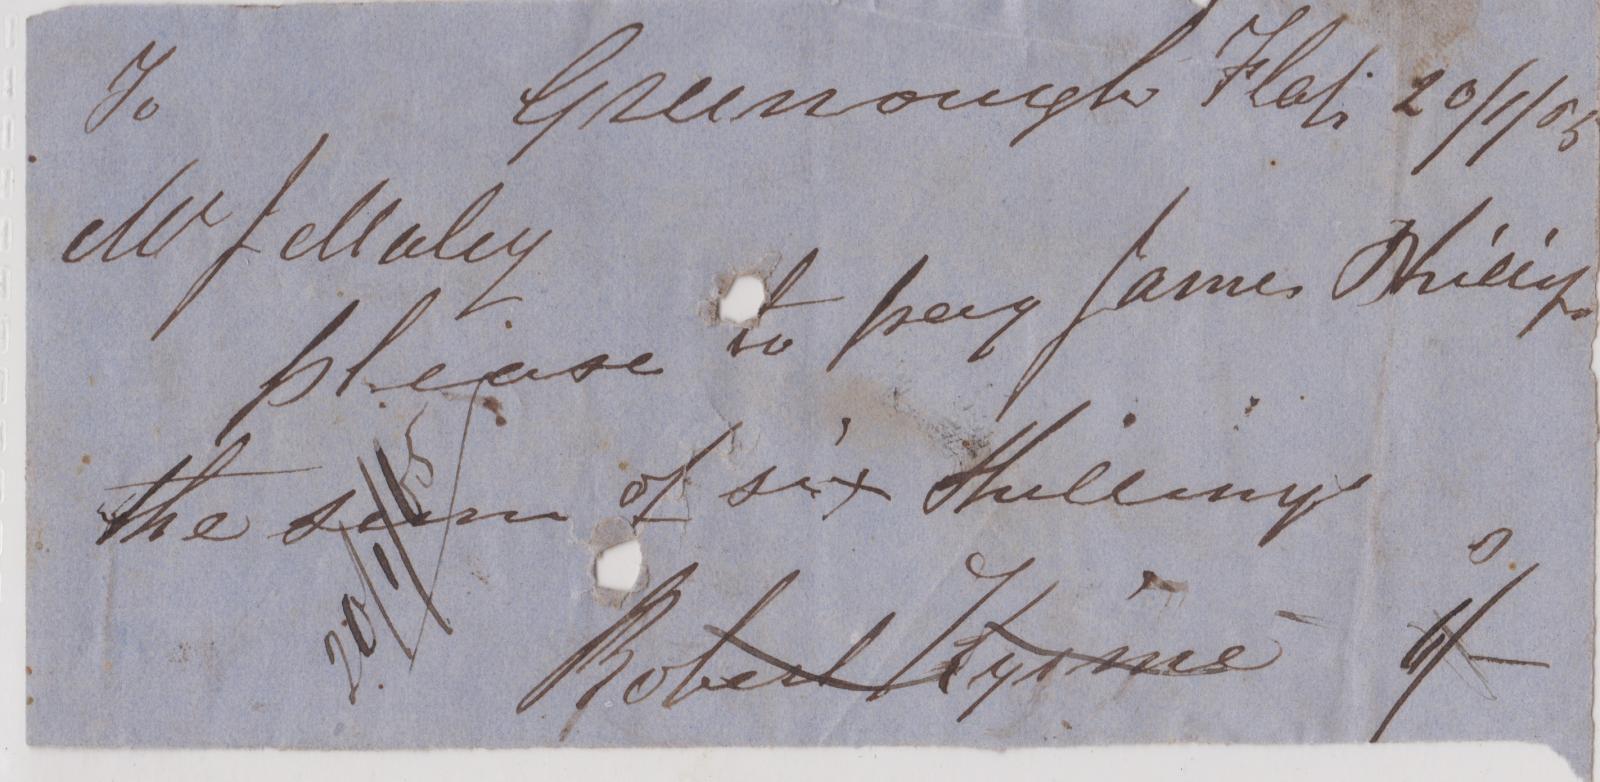 To Greenough Flat, 20/1/65
Mr J Maley
please to pay James Phillips
the sum of six Shillings
Robert 6/-
20/1/65